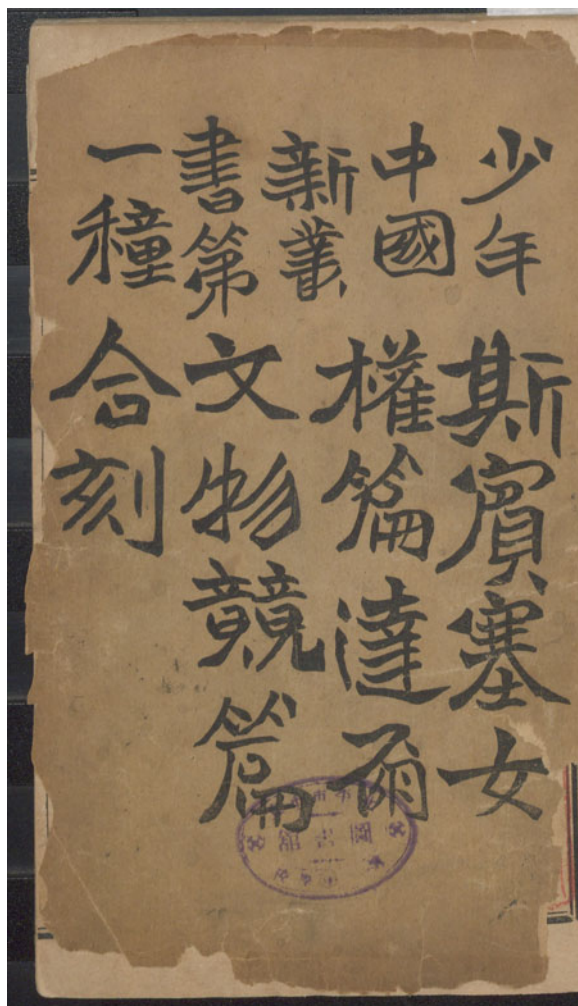 少年
中國
新叢
書第
一種
斯賓塞女
權篇達爾
文物競篇
合刻
圖書館